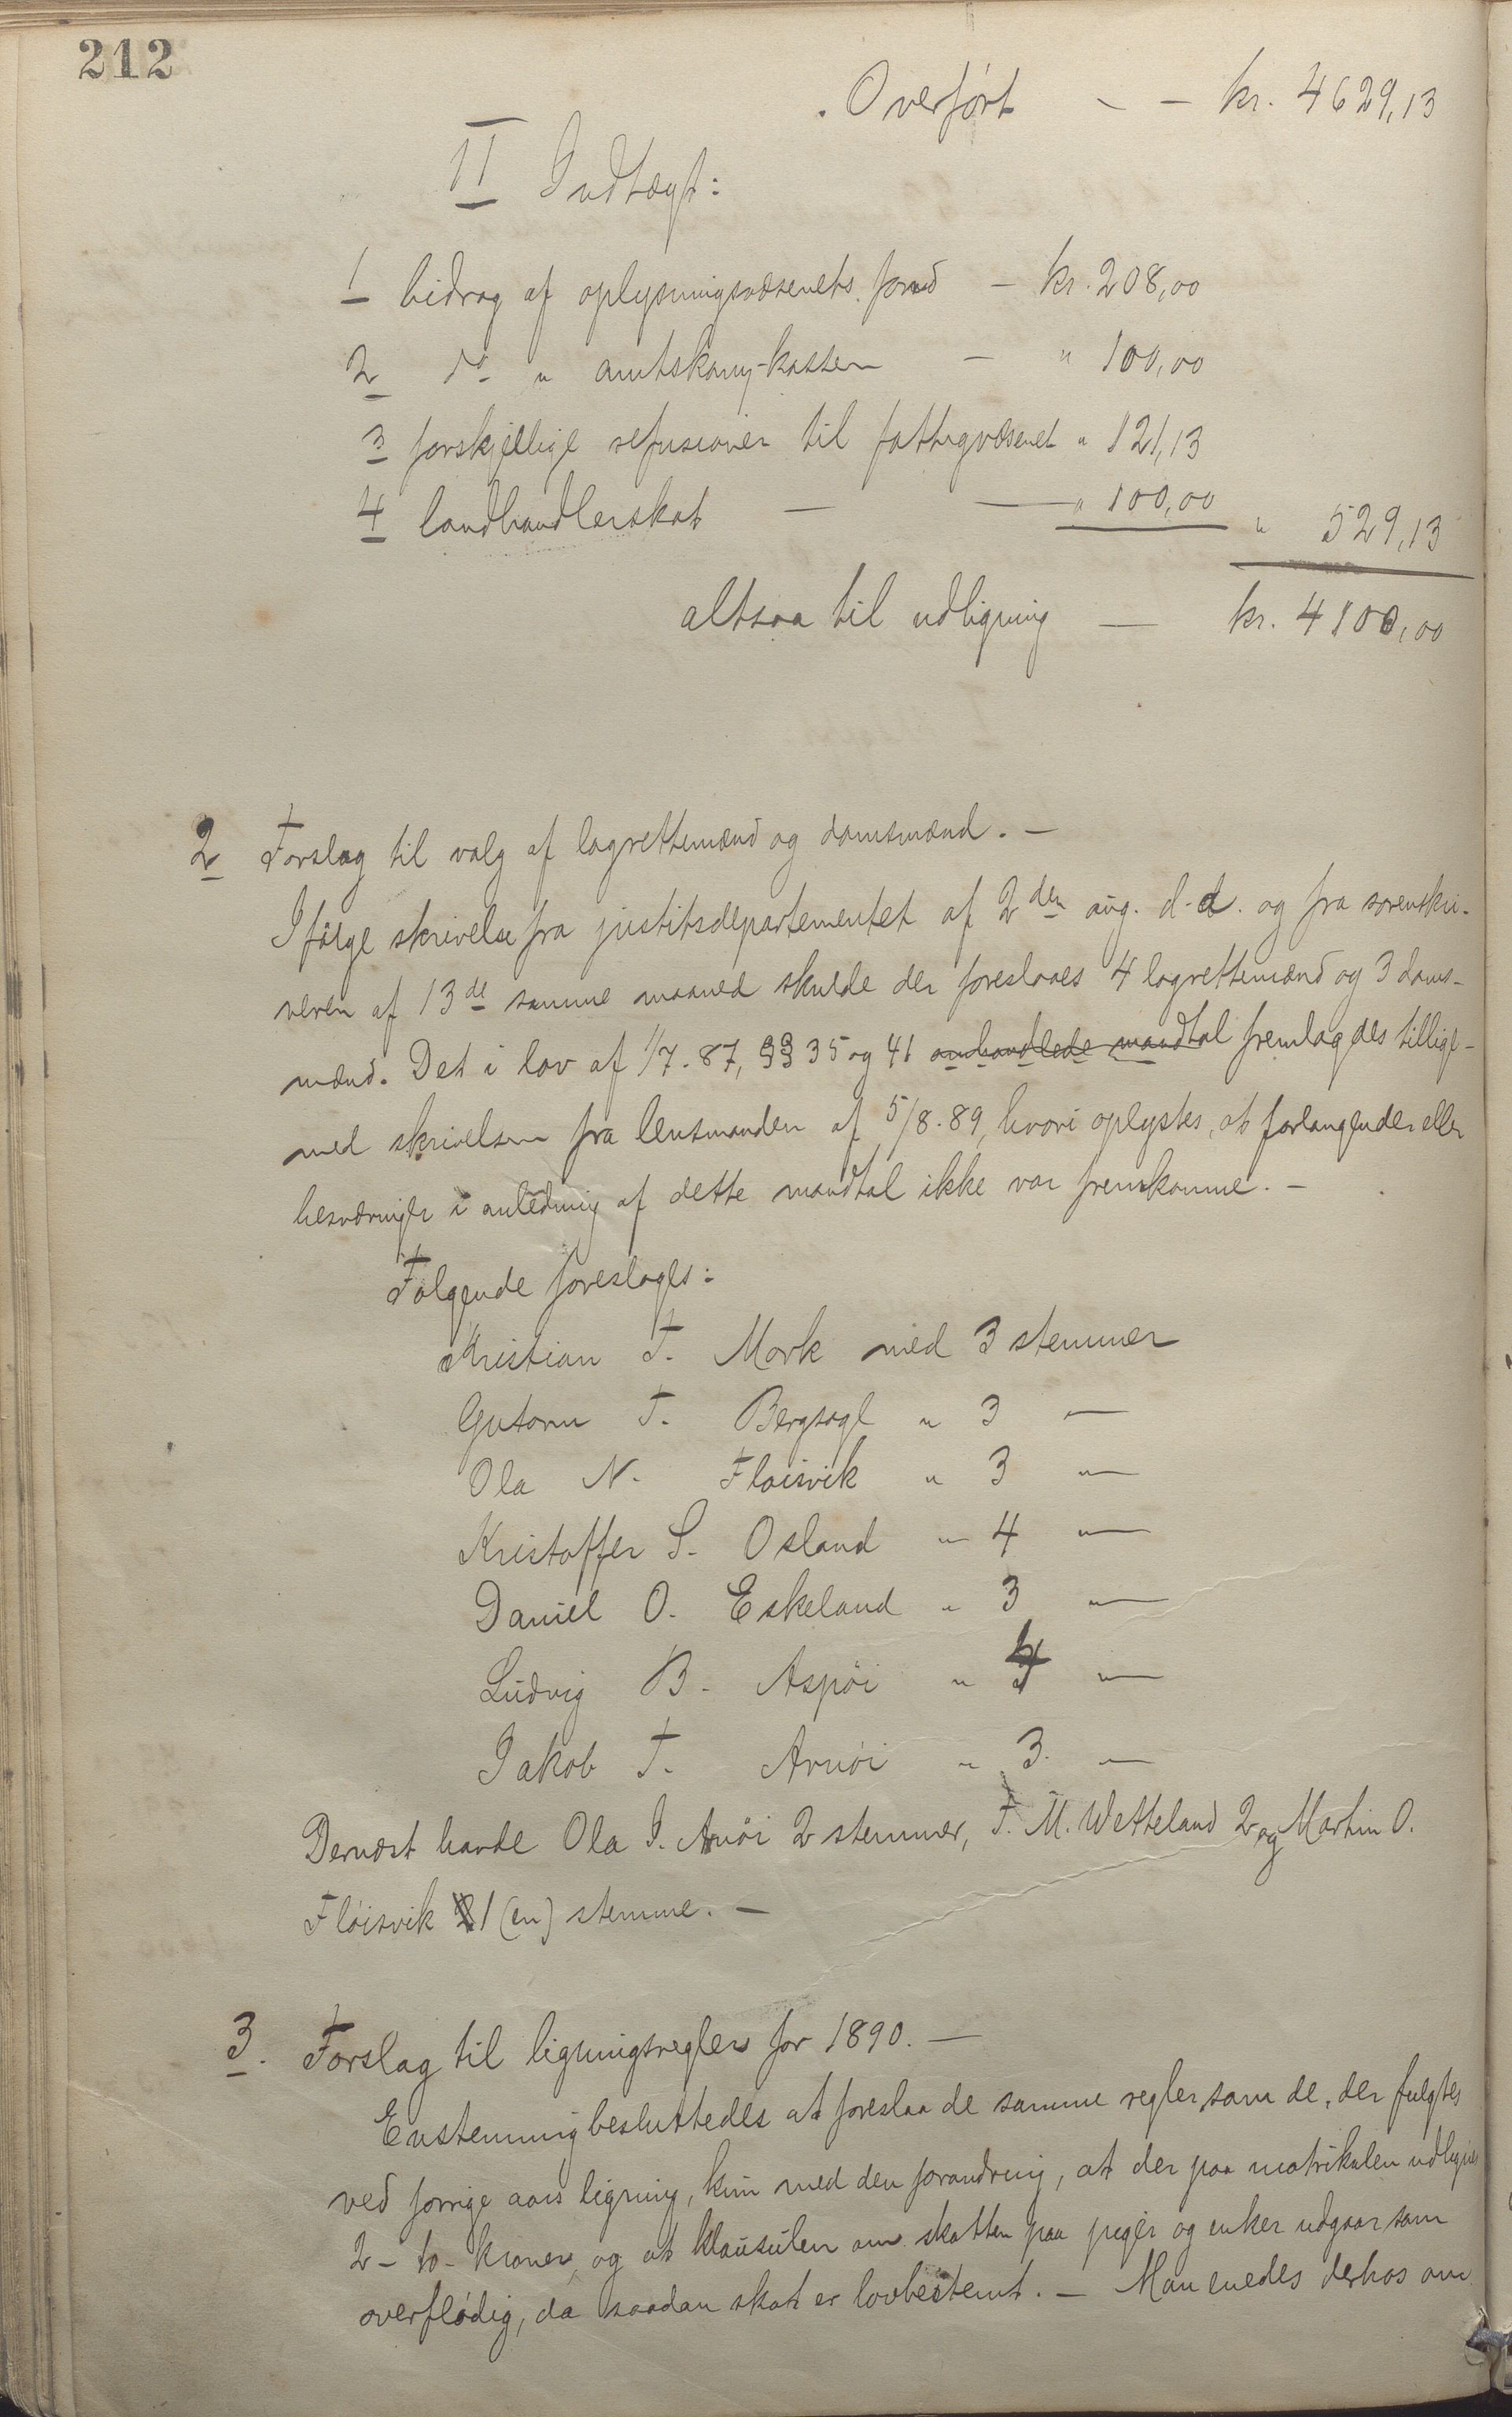 212
Overført - - kr. 4629,13
II Indtægt:
1 bidrag af oplysningsvæsenets fond - kr. 208,00
2 do " amtskom-kassen - " 100,00
3 forskjellige refusioner til fattigvæsenet " 121,13
4 landhandlerskat - - " 100,00 " 529,13
altsaa til udligning - kr. 4100,00
2 Forslag til valg af lagrettemænd og domsmænd. -
Ifølge skrivelse fra justitsdepartementet af 2den aug. d. d. og fra sorenskri-
veren af 13de samme maaned skulde der foreslaaes 4 lagrettemænd og 3 doms-
mænd. Det i lov af 1/7-87, §§ 35 og 41 omhandlede mandtal fremlagdes tillige-
med skrivelsen fra lensmanden af 5/8-89, hvori oplystes, at forlangender eller
besværinger i anledning af dette mandtal ikke var fremkomne. -
Følgende foreslages:
Kristian T. Mork med 3 stemmer
Gutorm T. Bergsagl " 3 -
Ola N. Fløisvik " 3 "-
Kristoffer S. Osland " 4 "-
Daniel O. Eskeland " 3 "-
Ludvig B. Aspøi " 4 "-
Jakob T. Arnøi " 3. "-
Dernæst havde Ola J. Arnøi 2 stemmer, T. M. Wetteland 2 og Martin O.
Fløisvik 1 (en) stemme. -
3. Forslag til ligningsregler for 1890. -
Enstemmig besluttedes at foreslaa de samme regler, som de, der fulgtes
ved forrige aars ligning, kun med den forandring, at der paa matrikulen udlignes
2 - to - kroner, og at klausulen om skatten paa piger og enker udgaar som
overflødig, da saadan skat er lovbestemt. - Man enedes derhos om